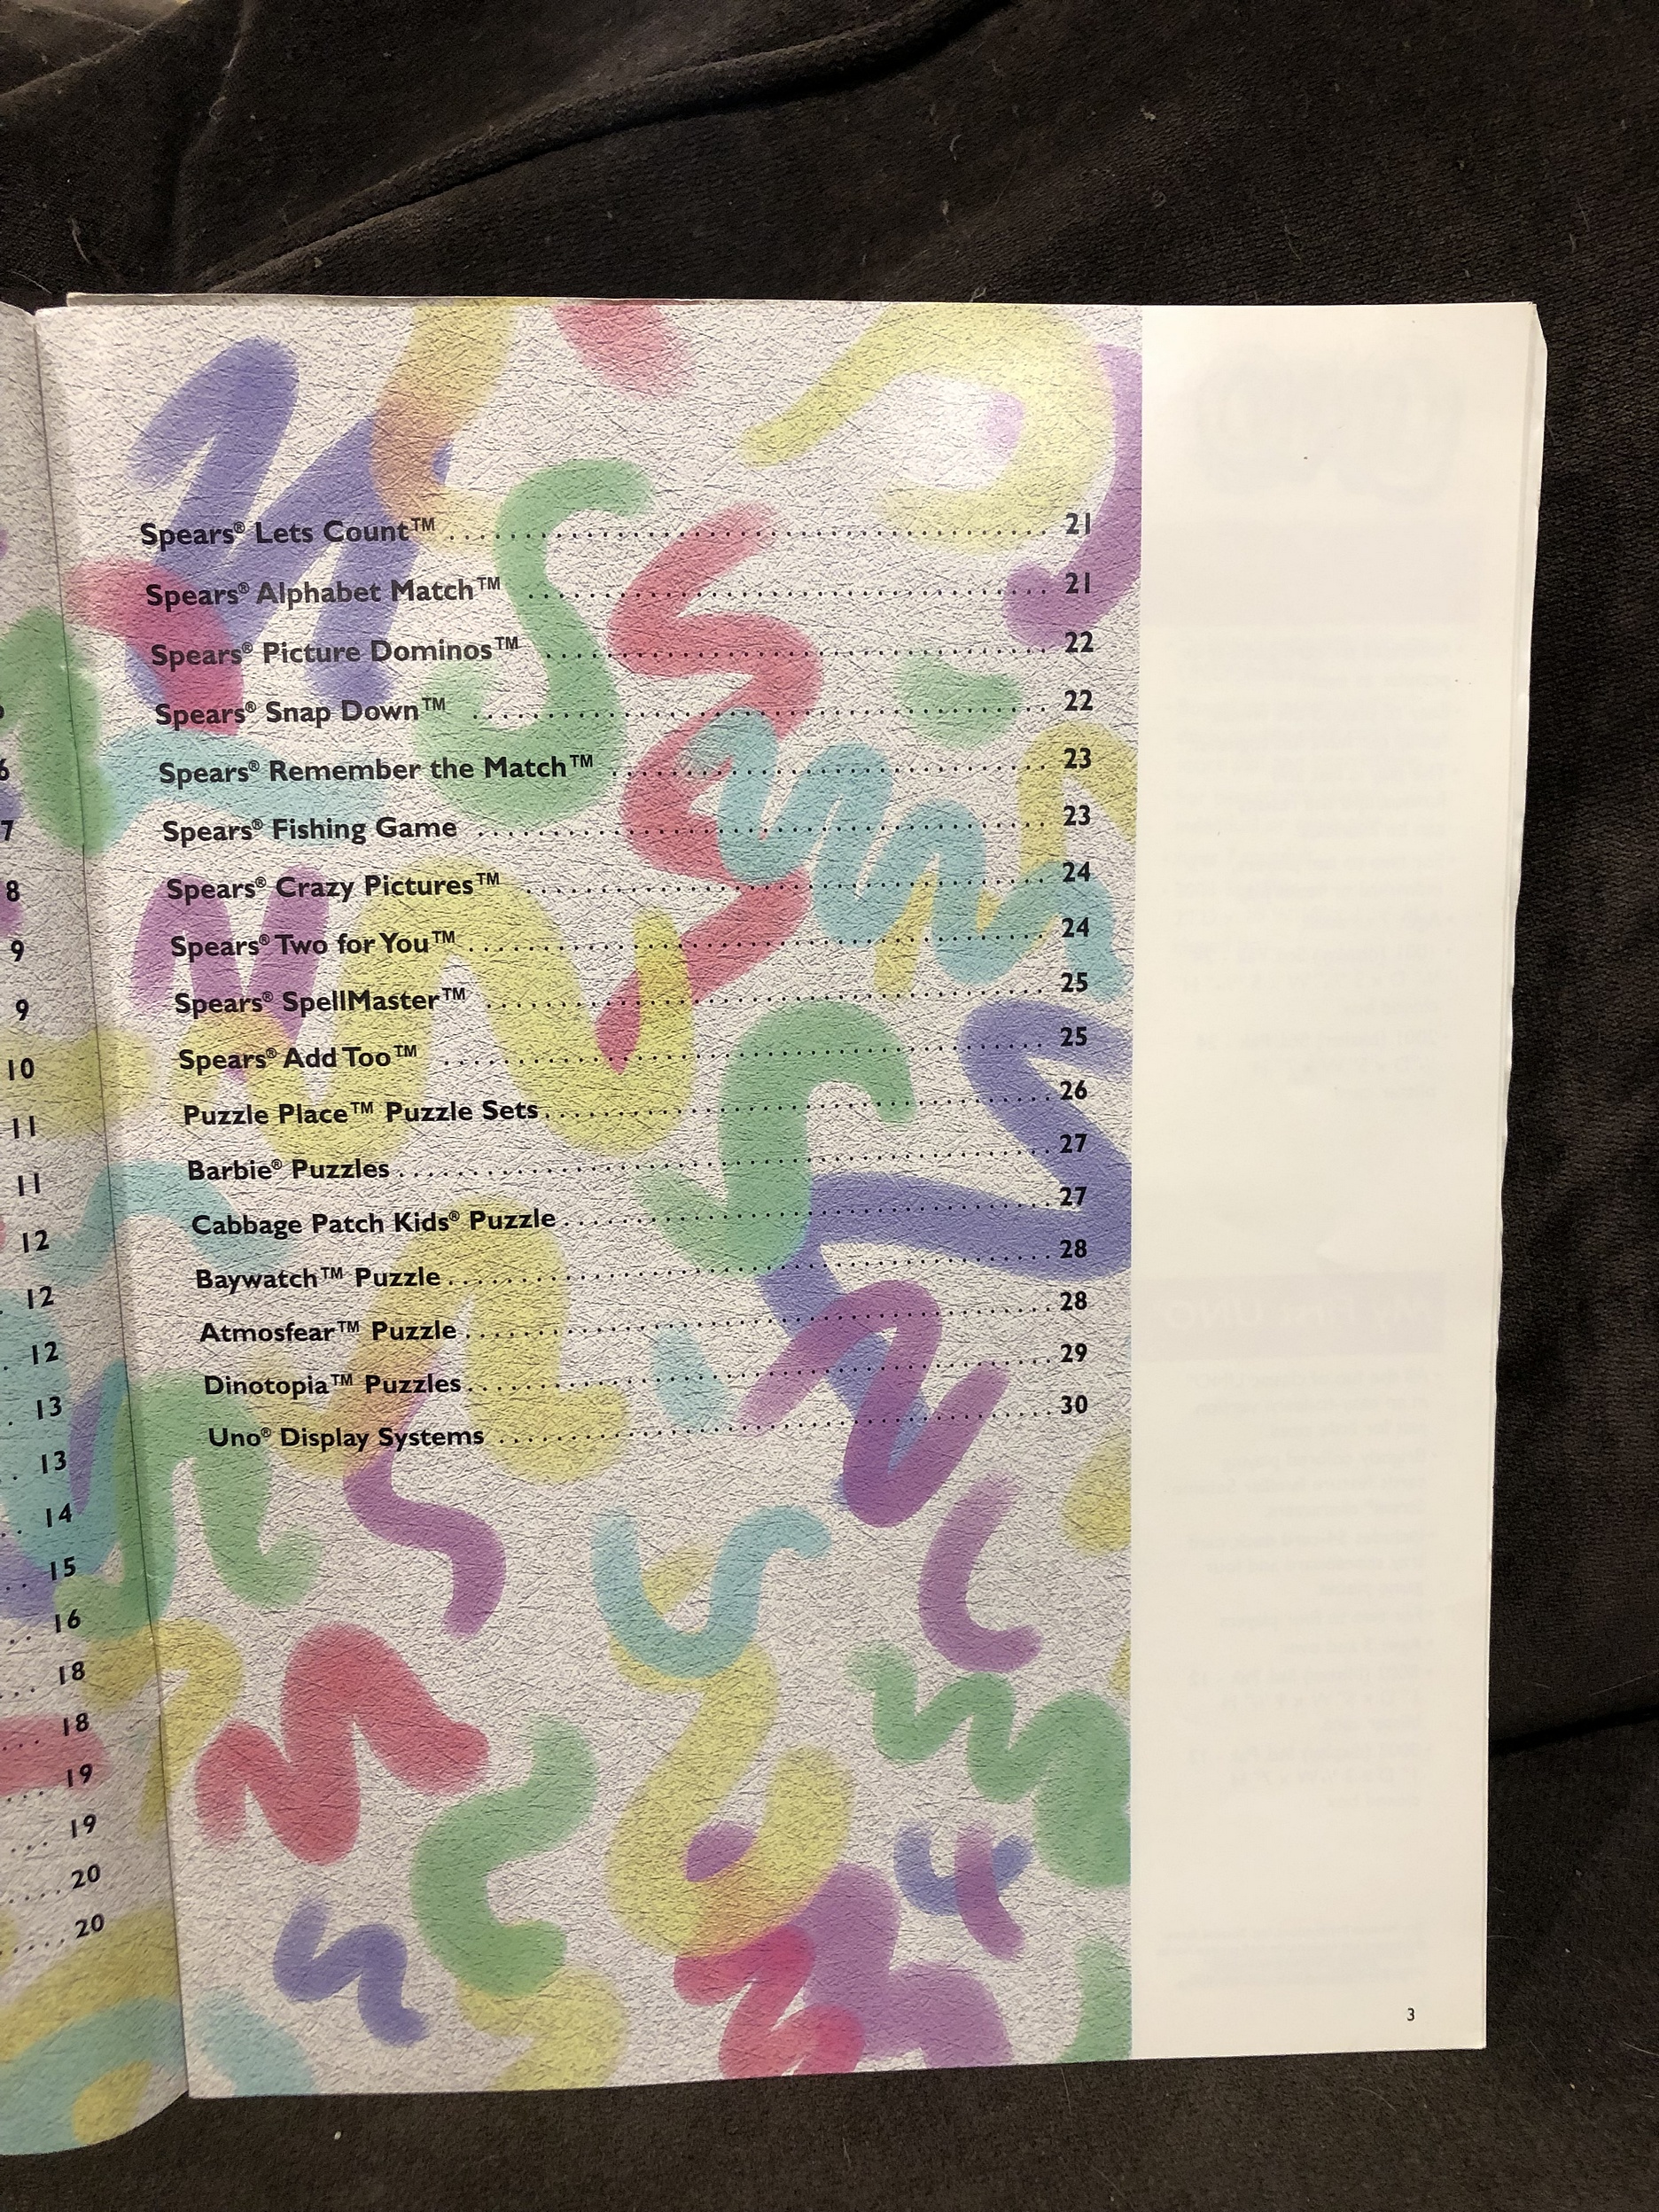 6
7
8
9
9
10
11
11
12
12
12
13
13
14
15
16
18
18
19
19
20
20
Spears® Lets Count™ 21
Spears® Alphabet Match™ 21
Spears® Picture Dominos™ 22
Spears® Snap Down™ 22
Spears® Remember the Match™ 23
Spears® Fishing Game 23
Spears® Crazy Pictures™ 24
Spears® Two for You™ 24
Spears® SpellMaster™ 25
Spears® Add Too™ 25
Puzzle Place™ Puzzle Sets 26
Barbie® Puzzles 27
Cabbage Patch Kids® Puzzle 27
Baywatch™ Puzzle 28
Atmosfear™ Puzzle 28
Dinotopia™ Puzzles 29
Uno® Display Systems 30
3